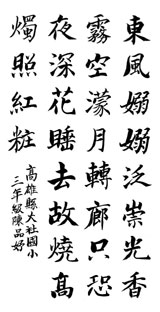 東風嫋嫋泛崇光香
霧空濛月轉廊只恐
夜深花睡去故燒高
燭照紅粧
高雄縣大社國小
三年級陳品好